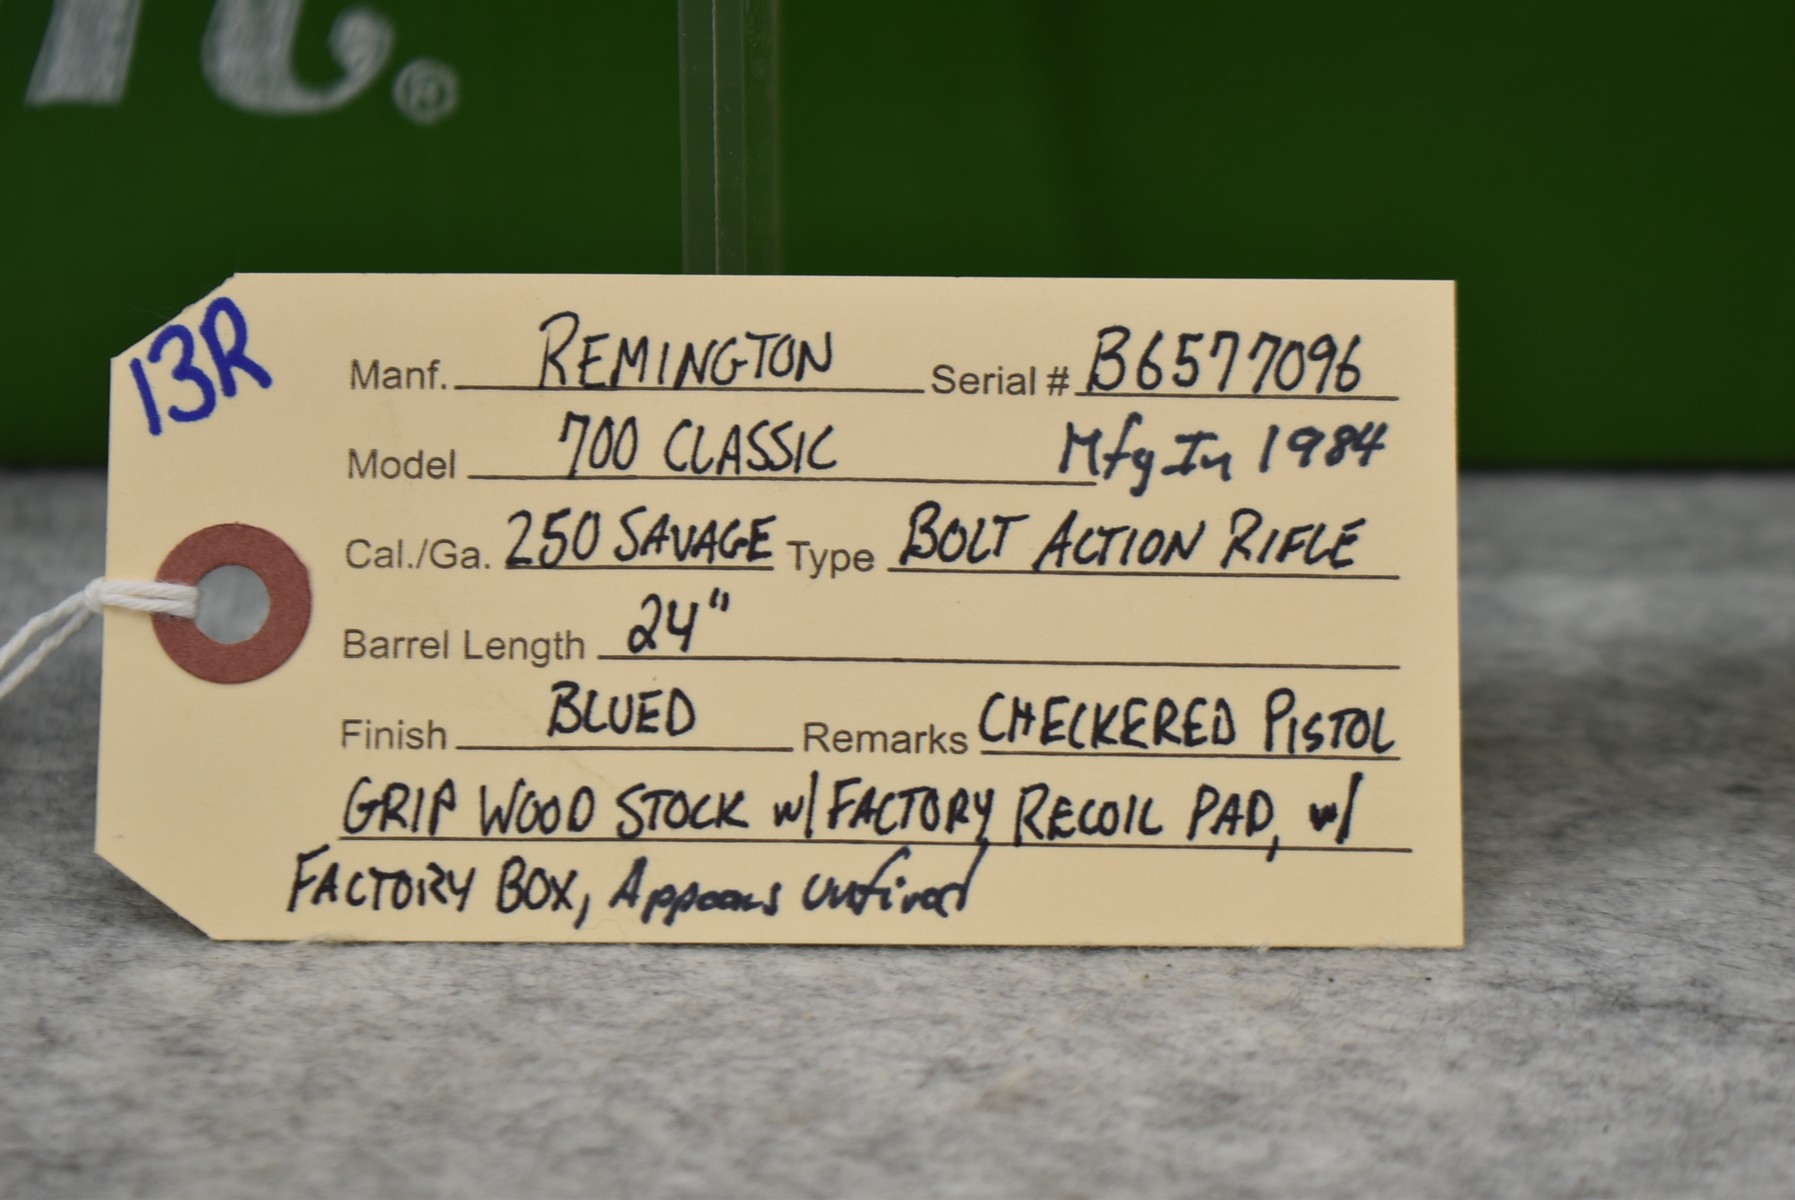 n.®
13R
Manf. REMINGTON Serial # B6577096
Model 700 CLASSIC Mfg In 1984
Cal./Ga. 250 SAVAGE Type BOLT ACTION RIFLE
Barrel Length 24"
Finish BLUED Remarks CHECKERED PISTOL
GRIP WOOD STOCK w/ FACTORY RECOIL PAD, w/
FACTORY BOX, Appears Unfired